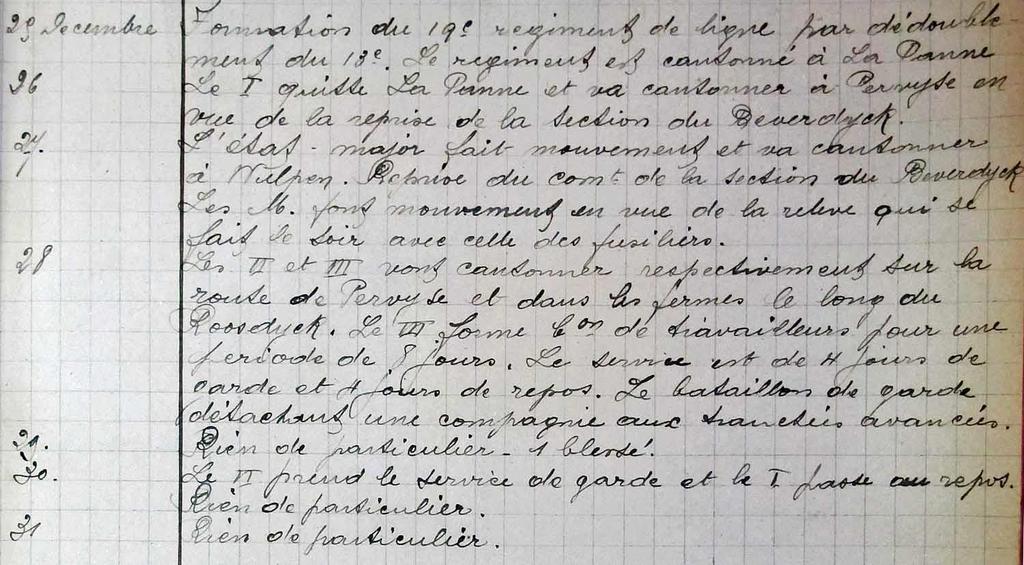 25 Decembre Formation du 19e regiment de ligne par dédouble-
ment du 13e. Le regiment est cantonné à La Panne
26 Le I quitte La Panne et va cantonner à Pervyse en
vue de la reprise de la section du Beverdyck.
27. L'état-major fait mouvement et va cantonner
à Wulpen. Reprise du comt de la section du Beverdyck
Les M. font mouvement en vue de la releve qui se
fait le soir avec celle des fusiliers.
28 Les II et III vont cantonner respectivement sur la
route de Pervyse et dans les fermes le long du
Roosdyck. Le III forme bon de travailleurs pour une
période de 8 jours. Le service est de 4 jours de
garde et 4 jours de repos. Le bataillon de garde
détachant une compagnie aux tranchées avancées.
29. Rien de particulier - 1 blessé.
30. Le II prend le service de garde et le I passe au repos.
Rien de particulier.
31 Rien de particulier.